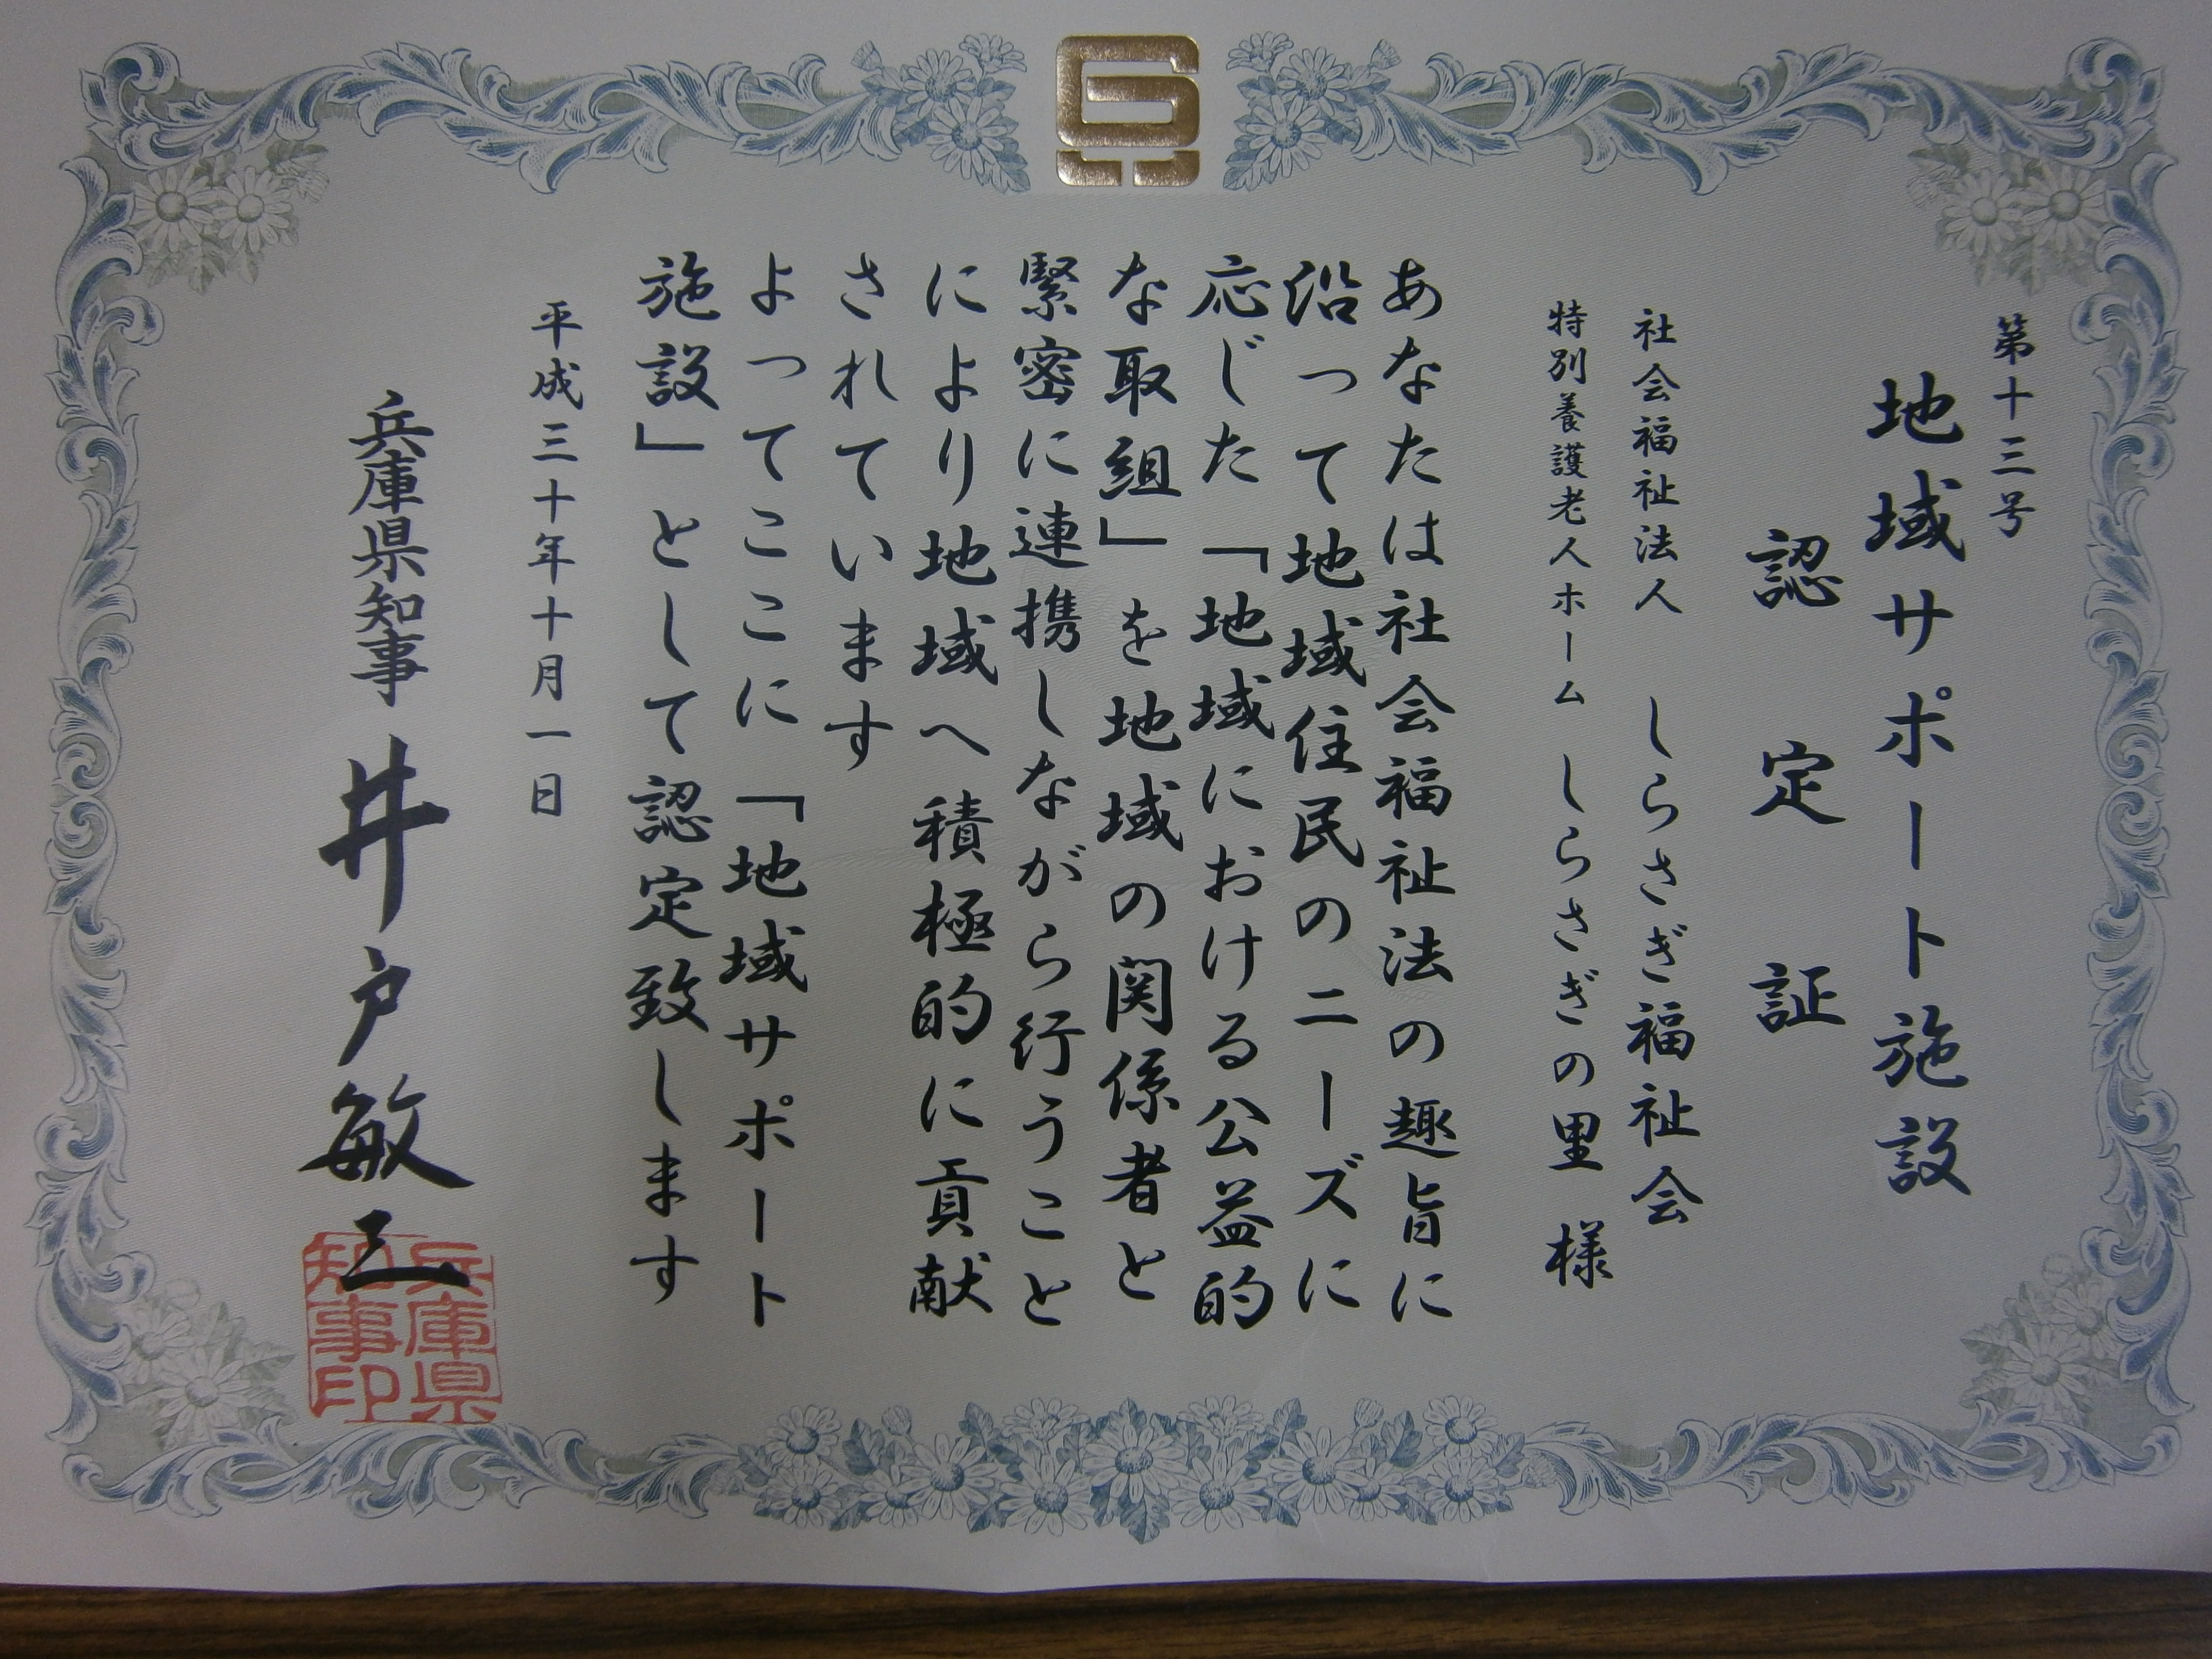 第十三号
地域サポート施設
認定証
社会福祉法人 しらさぎ福祉会
特別養護老人ホーム しらさぎの里 様
あなたは社会福祉法の趣旨に
沿って地域住民のニーズに
応じた「地域における公益的
な取組」を地域の関係者と
緊密に連携しながら行うこと
により地域へ積極的に貢献
されています
よってここに「地域サポート
施設」として認定致します
平成三十年十月一日
兵庫県知事 井戸敏三
兵庫県
知事印